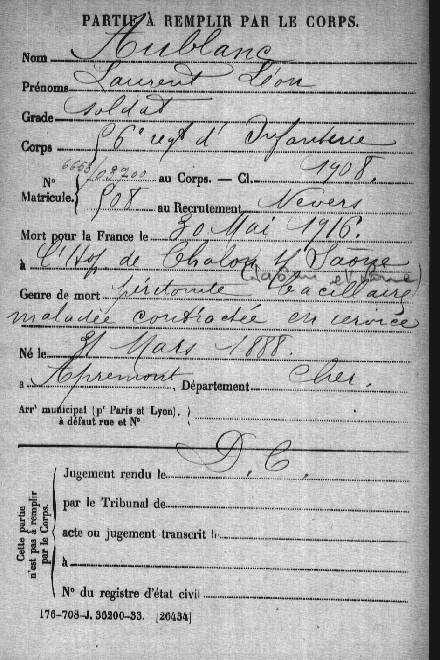 PARTIE À REMPLIR PAR LE CORPS.
Nom Aublanc
Prénoms Laurent Léon
Grade soldat
Corps 56e regt d'Infanterie
N° Matricule. { au Corps. — Cl. 1908.
508 au Recrutement Nevers
Mort pour la France le 30 Mai 1916.
à l'Hop. de Chalon s/ Saône
Genre de mort péritonite bacillaire
maladie contractée en service
Né le 21 Mars 1888.
à Apremont, Département Cher.
Arrt municipal (pr Paris et Lyon), }
à défaut rue et N°
D. C.
Cette partie n'est pas à remplir par le Corps. { Jugement rendu le
par le Tribunal de
acte ou jugement transcrit le
à
N° du registre d'état civil
176-708-J. 36200-33. [26434]